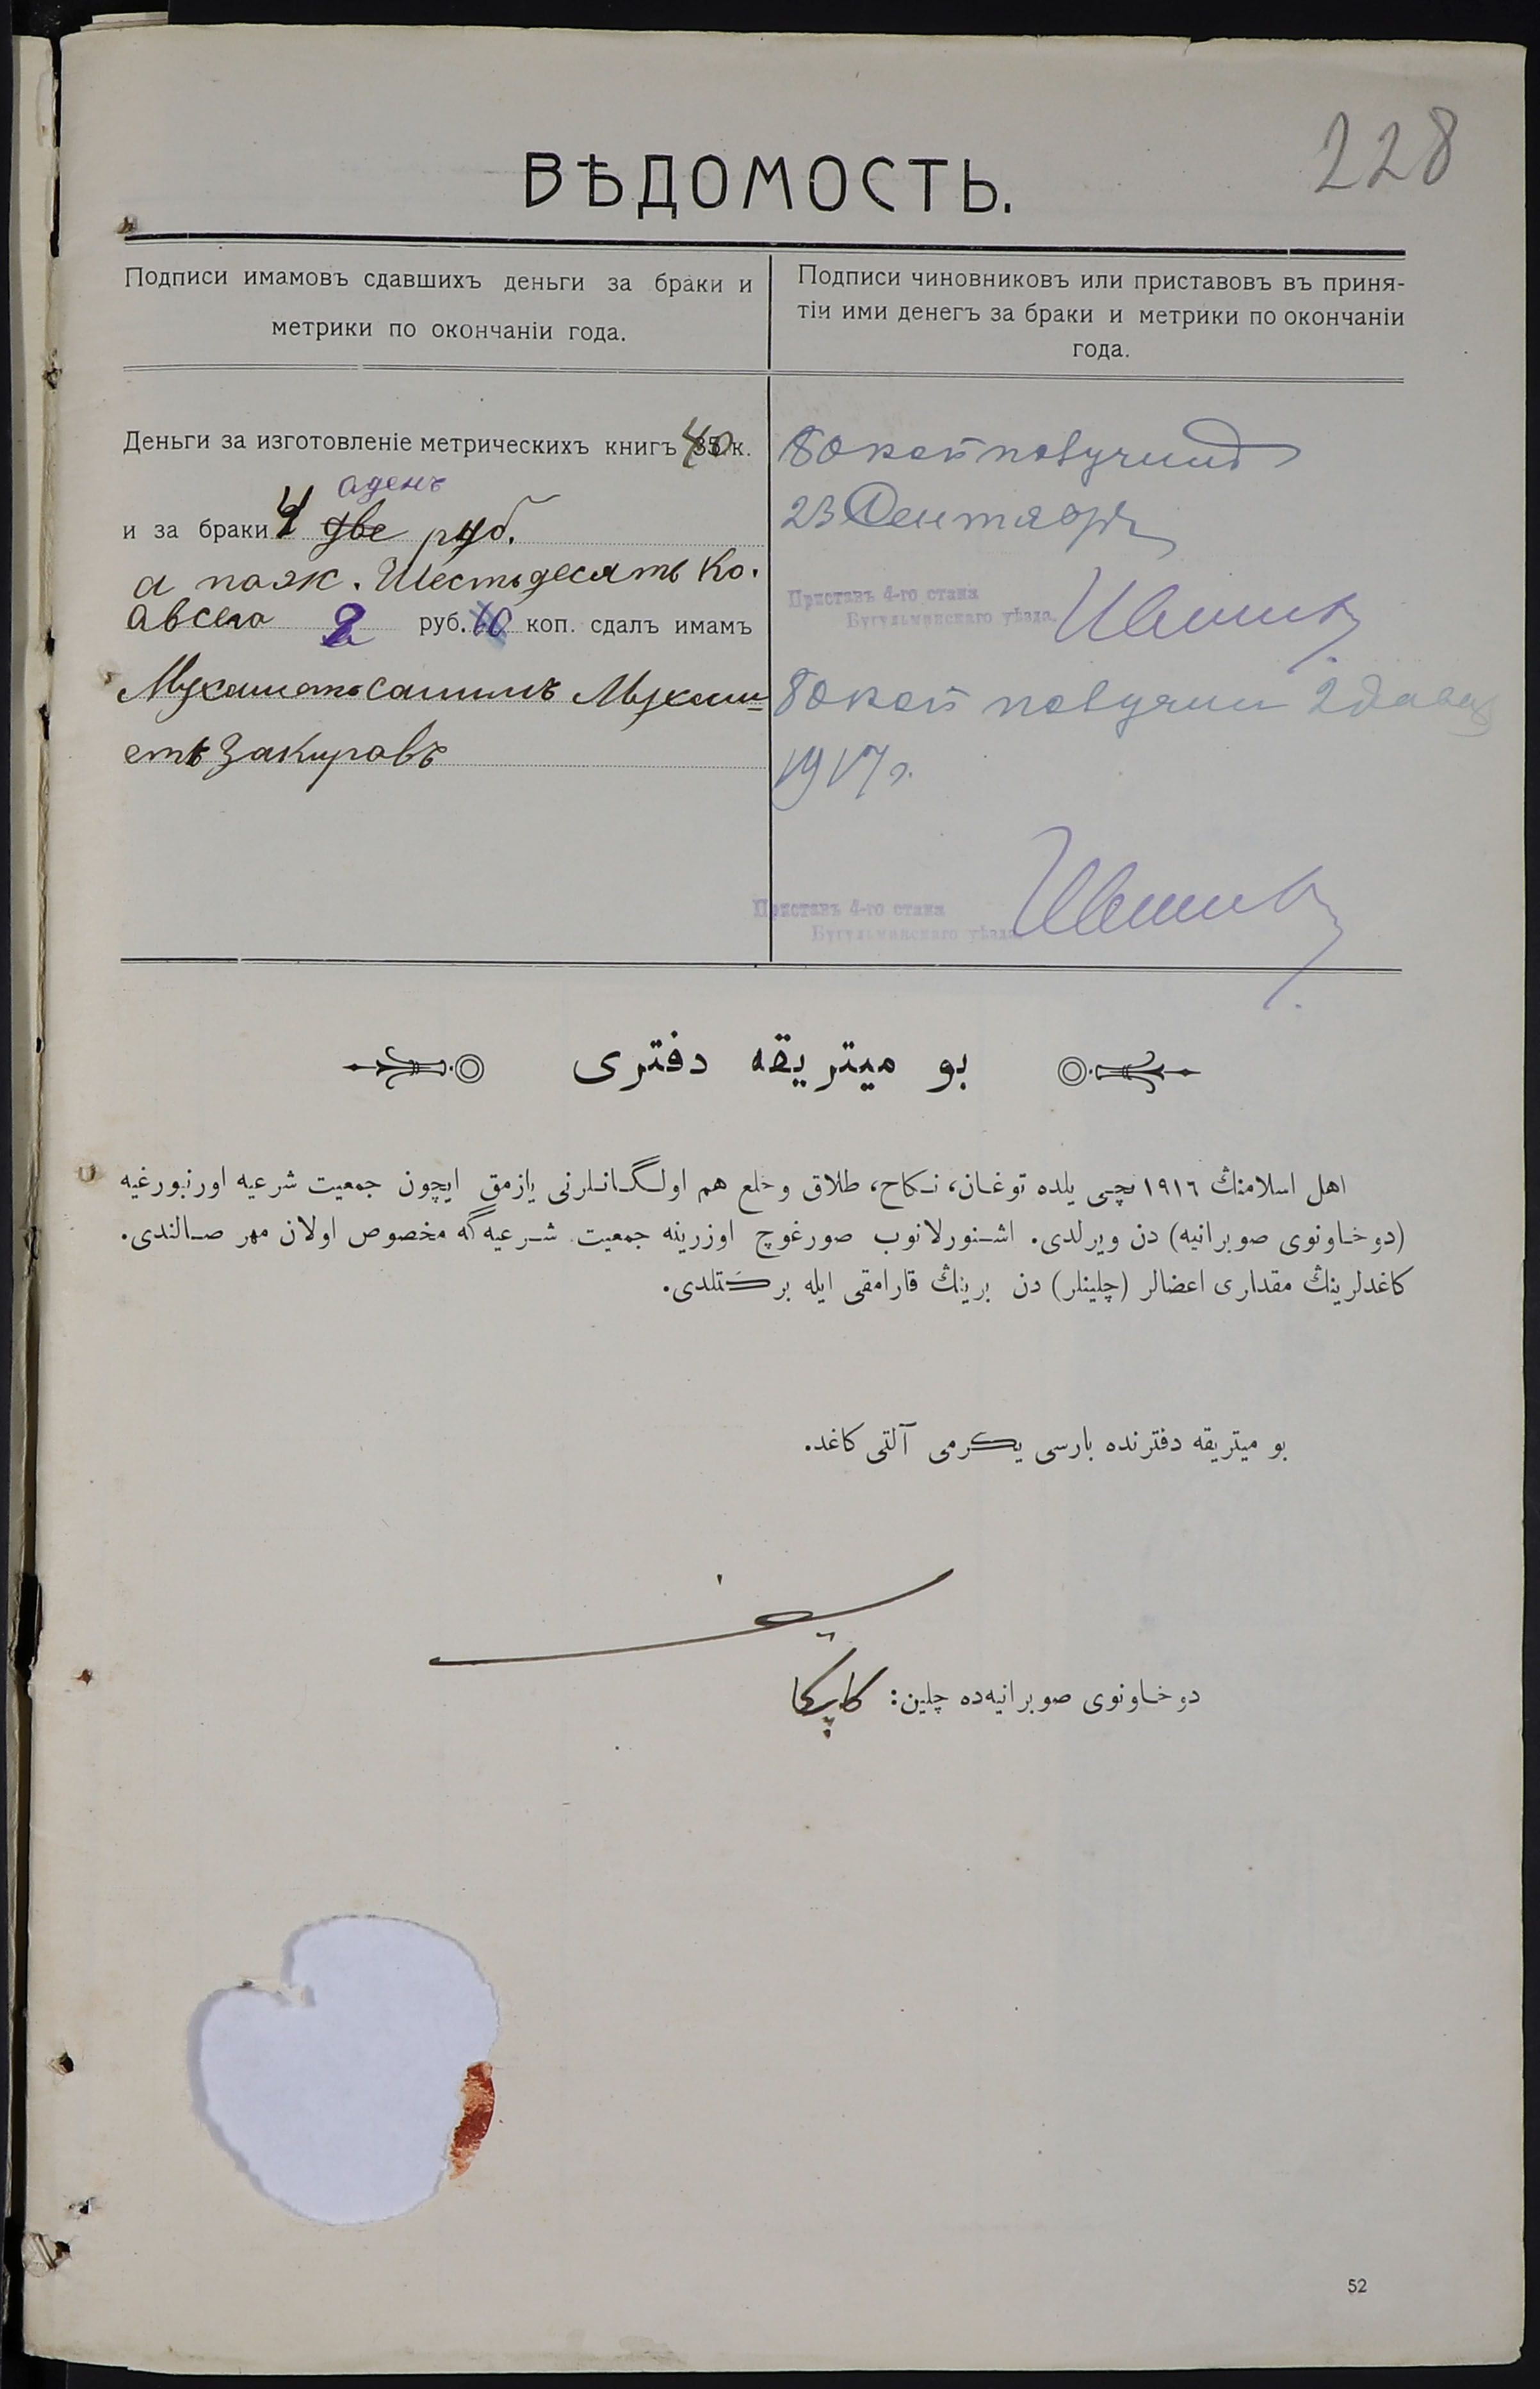 228
ВѢДОМОСТЬ.
Подписи имамовъ сдавшихъ деньги за браки и
метрики по окончаніи года.
Подписи чиновниковъ или приставовъ въ приня-
тіи ими денегъ за браки и метрики по окончаніи
года.
Деньги за изготовленіе метрическихъ книгъ 40 к.
аденъ
и за браки две руб.
а пояк. Шестьдесять Ко.
Авсего 2 руб. коп. сдалъ имамъ
Мухаметьсалимъ Мухам=
етъ Закировъ
80 коп получилъ
23 Сентября
Приставъ 4-го стана
Бугульминскаго уѣзда.
80 коп получил 2
1917 г.
Приставъ 4-го стана
Бугульминскаго уѣзда.
بو ميتريقه دفترى
اهل اسلامنڭ ١٩١٦ نچـى يلده توغـان، نـكاح، طلاق وخلع هم اولـگـانـلرنى يازمق ايچون جمعيت شرعيه اورنبورغيه
(دوخـاونوى صوبرانيه) دن ويرلدى. اشـنورلانوب صورغوچ اوزرينه جمعيت شـرعيه‌گه مخصوص اولان مهر صـالندى.
كاغدلرينڭ مقدارى اعضالر (چلينلر) دن برينڭ قارامقى ايله بركتلدى.
بو ميتريقه دفترنده بارسى يكرمى آلتى كاغد.
دوخـاونوى صوبرانيه‌ده چلين:
52